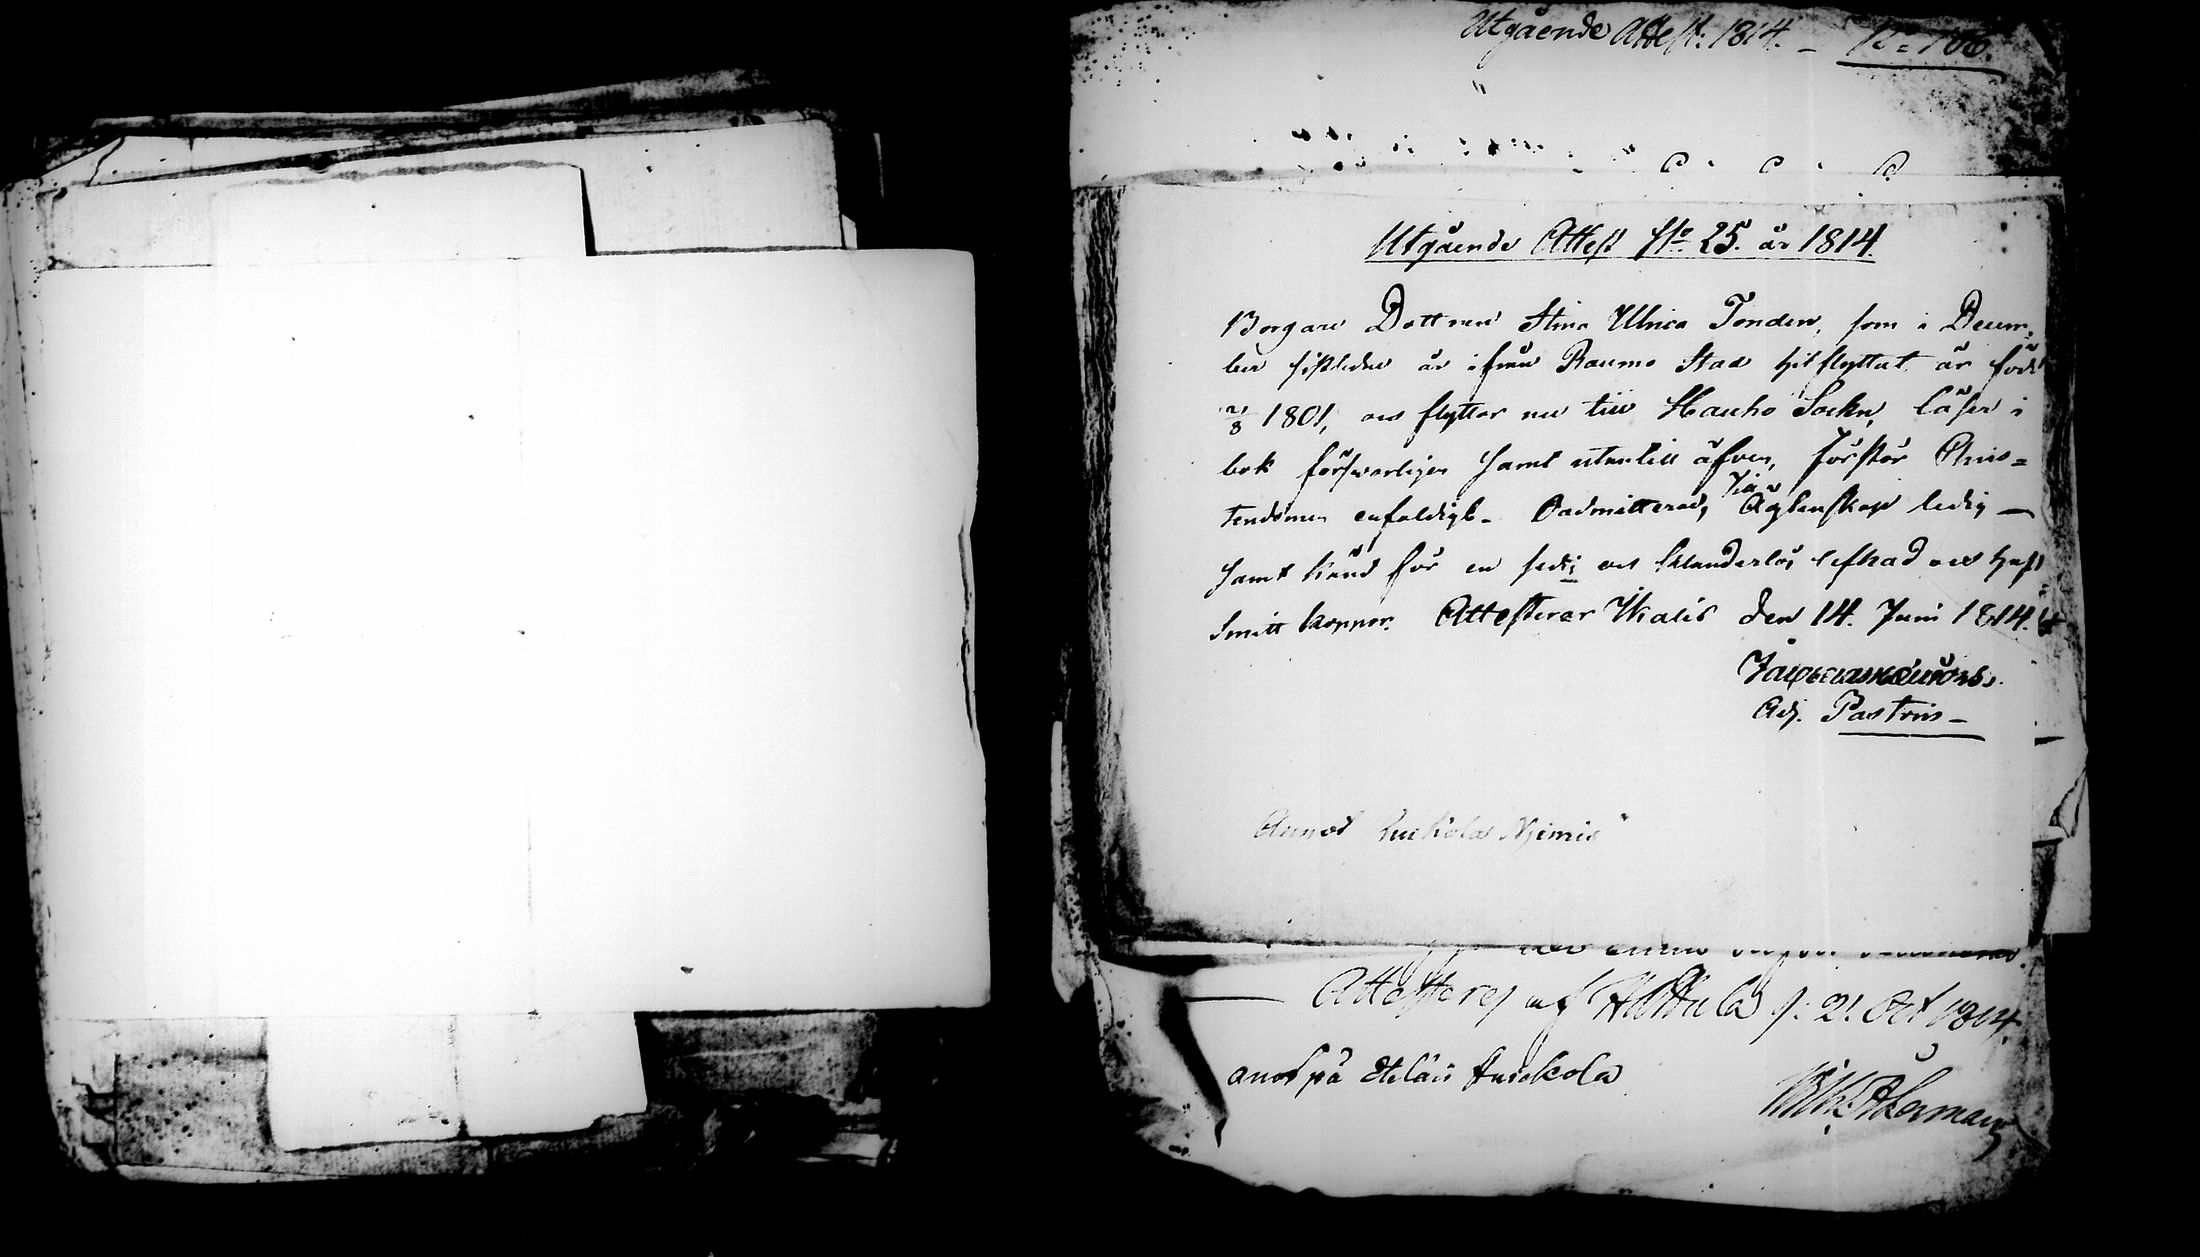 Utgående Attest. 1814. – No 106.
Utgående Attest No 25. år 1814.
Borgare Dottren Stina Ulrica Tonden, som i Decem-
ber sistledne år ifrån Raumo Stad hitflyttat är född
21/8 1801, och flyttar nu till Hauho Sockn, läser i
bok försvarligen samt utantill äfven, förstår Chris=
tendomen enfaldigt. Oadmitterad, från Ägtenskap ledig —
samt känd för en sedig och klanderlös lefnad och haft
Smitt koppor. Attesterar Ikalis den 14. Juni 1814.
Adj. Pastoris –
Attesteras af Hattula d: 21 Oct 1814.
Åkerman